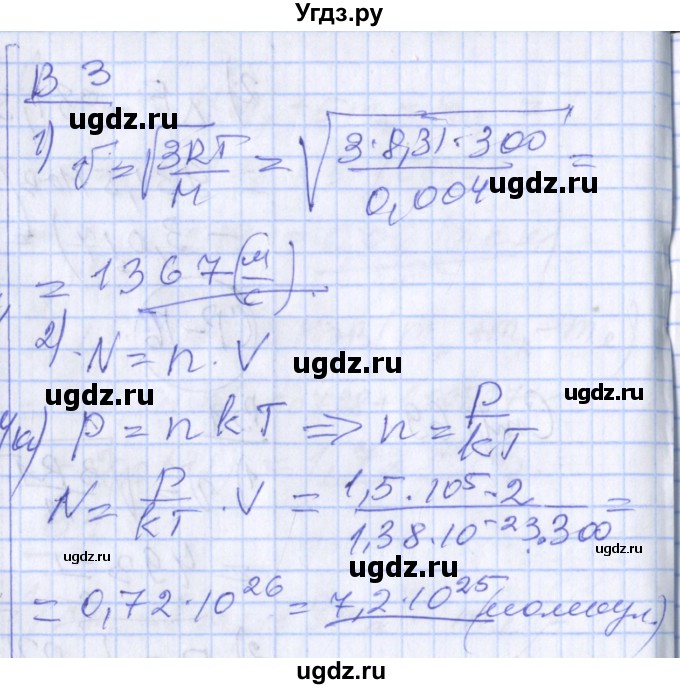 Угдз.ру
В 3
ugdz.ru
1) v = √(3RT/M) = √(3·8,31·300/0,004) =
ugdz.ru
= 1367 (м/с).
ugdz.ru
2) N = n · V
ugdz.ru
ugdz.ru
p = nkT => n = p/kT
ugdz.ru
N = p/kT · V = 1,5·10⁵·2/1,38·10⁻²³·300 =
ugdz.ru
ugdz.ru
ugdz.ru
= 0,72·10²⁶ = 7,2·10²⁵ (молекул.)
ugdz.ru
ugdz.ru